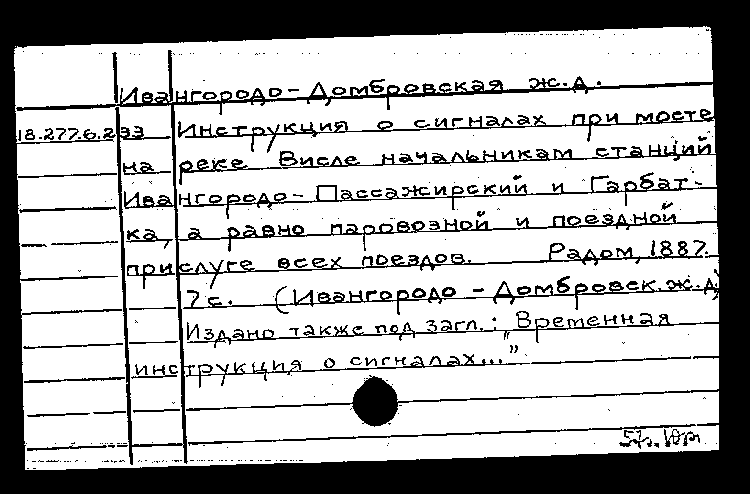 Ивангородо-Домбровская ж.д.
18.277.6.293 Инструкция о сигналах при мосте
на реке Висле начальникам станций
Ивангородо-Пассажирский и Гарбат-
ка, а равно паровозной и поездной
прислуге всех поездов. Радом, 1887.
7 с. (Ивангородо - Домбровск. ж.д.)
Издано также под загл.: „Временная
инструкция о сигналах..."